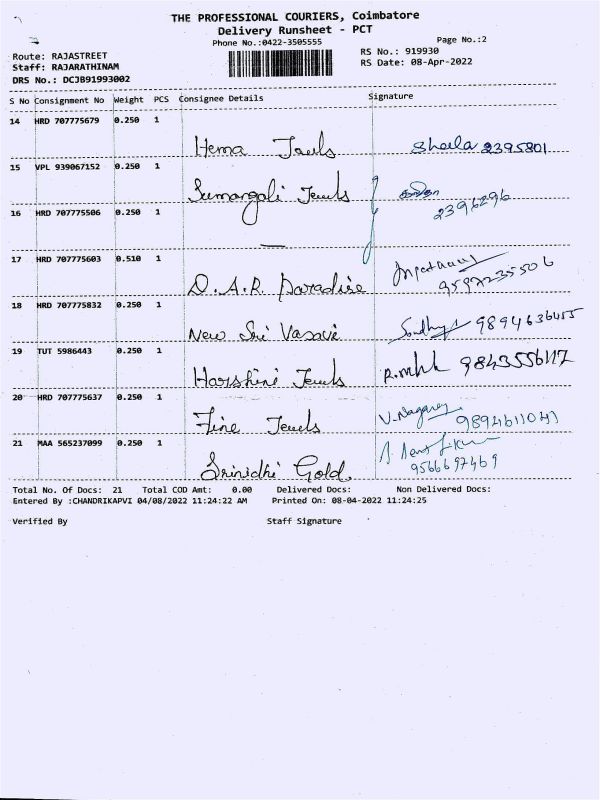 THE PROFESSIONAL COURIERS, Coimbatore
Delivery Runsheet - PCT
Phone No.:0422-3505555
Page No.:2
Route: RAJASTREET
Staff: RAJARATHINAM
DRS No.: DCJB91993002
RS No.: 919930
RS Date: 08-Apr-2022
S No Consignment No Weight PCS Consignee Details Signature
14 HRD 707775679 0.250 1
Hema Jewels Sheela 2395801
15 VPL 939067152 0.250 1
Sumangali Jewels
2396296
16 HRD 707775506 0.250 1
17 HRD 707775603 0.510 1
D.A.R. Paradise
18 HRD 707775832 0.250 1
New Sri Vasavi Sandhya 9894636455
19 TUT 5986443 0.250 1
Harshini Jewels 9843556117
20 HRD 707775637 0.250 1
Fine Jewels V. Nagaraj 9894611041
21 MAA 565237099 0.250 1
Srinidhi Gold 9566697469
Total No. Of Docs: 21 Total COD Amt: 0.00 Delivered Docs: Non Delivered Docs:
Entered By :CHANDRIKAPVI 04/08/2022 11:24:22 AM Printed On: 08-04-2022 11:24:25
Verified By Staff Signature